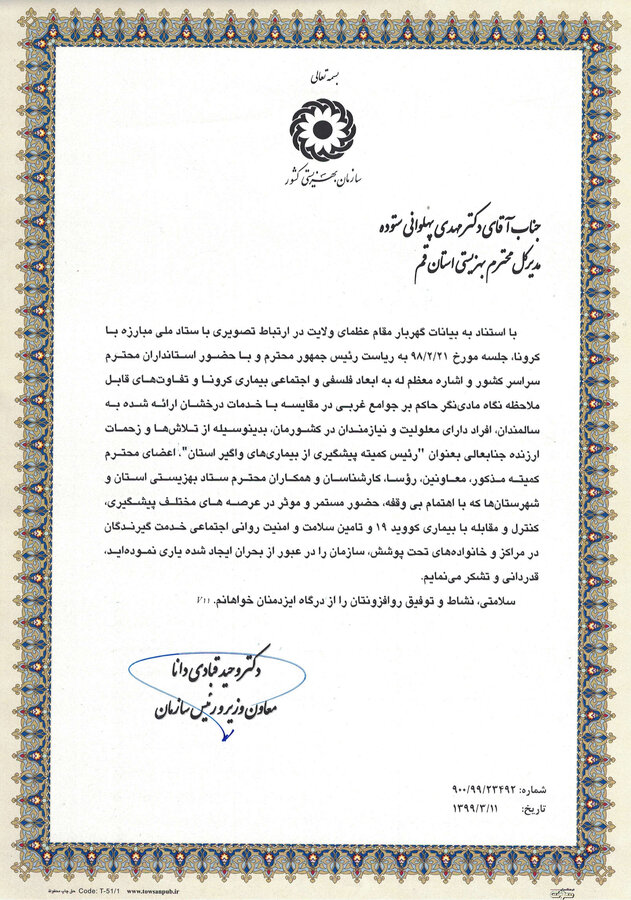 بسمه تعالی
سازمان بهزیستی کشور
جناب آقای دکتر مهدی پهلوانی ستوده
مدیرکل محترم بهزیستی استان قم
با استناد به بیانات گهربار مقام عظمای ولایت در ارتباط تصویری با ستاد ملی مبارزه با
کرونا، جلسه مورخ ۹۸/۲/۲۱ به ریاست رئیس جمهور محترم و با حضور استانداران محترم
سراسر کشور و اشاره معظم له به ابعاد فلسفی و اجتماعی بیماری کرونا و تفاوت‌های قابل
ملاحظه نگاه مادی‌نگر حاکم بر جوامع غربی در مقایسه با خدمات درخشان ارائه شده به
سالمندان، افراد دارای معلولیت و نیازمندان در کشورمان، بدینوسیله از تلاش‌ها و زحمات
ارزنده جنابعالی بعنوان "رئیس کمیته پیشگیری از بیماری‌های واگیر استان"، اعضای محترم
کمیته مذکور، معاونین، رؤسا، کارشناسان و همکاران محترم ستاد بهزیستی استان و
شهرستان‌ها که با اهتمام بی وقفه، حضور مستمر و موثر در عرصه های مختلف پیشگیری،
کنترل و مقابله با بیماری کووید ۱۹ و تامین سلامت و امنیت روانی اجتماعی خدمت گیرندگان
در مراکز و خانواده‌های تحت پوشش، سازمان را در عبور از بحران ایجاد شده یاری نموده‌اید،
قدردانی و تشکر می‌نمایم.
سلامتی، نشاط و توفیق روافزونتان را از درگاه ایزدمنان خواهانم. ۷۱۱
دکتر وحید قبادی دانا
معاون وزیر و رئیس سازمان
شماره: ۹۰۰/۹۹/۲۳۴۹۲
تاریخ: ۱۳۹۹/۳/۱۱
حق چاپ محفوظ Code: T-51/1 www.towsanpub.ir